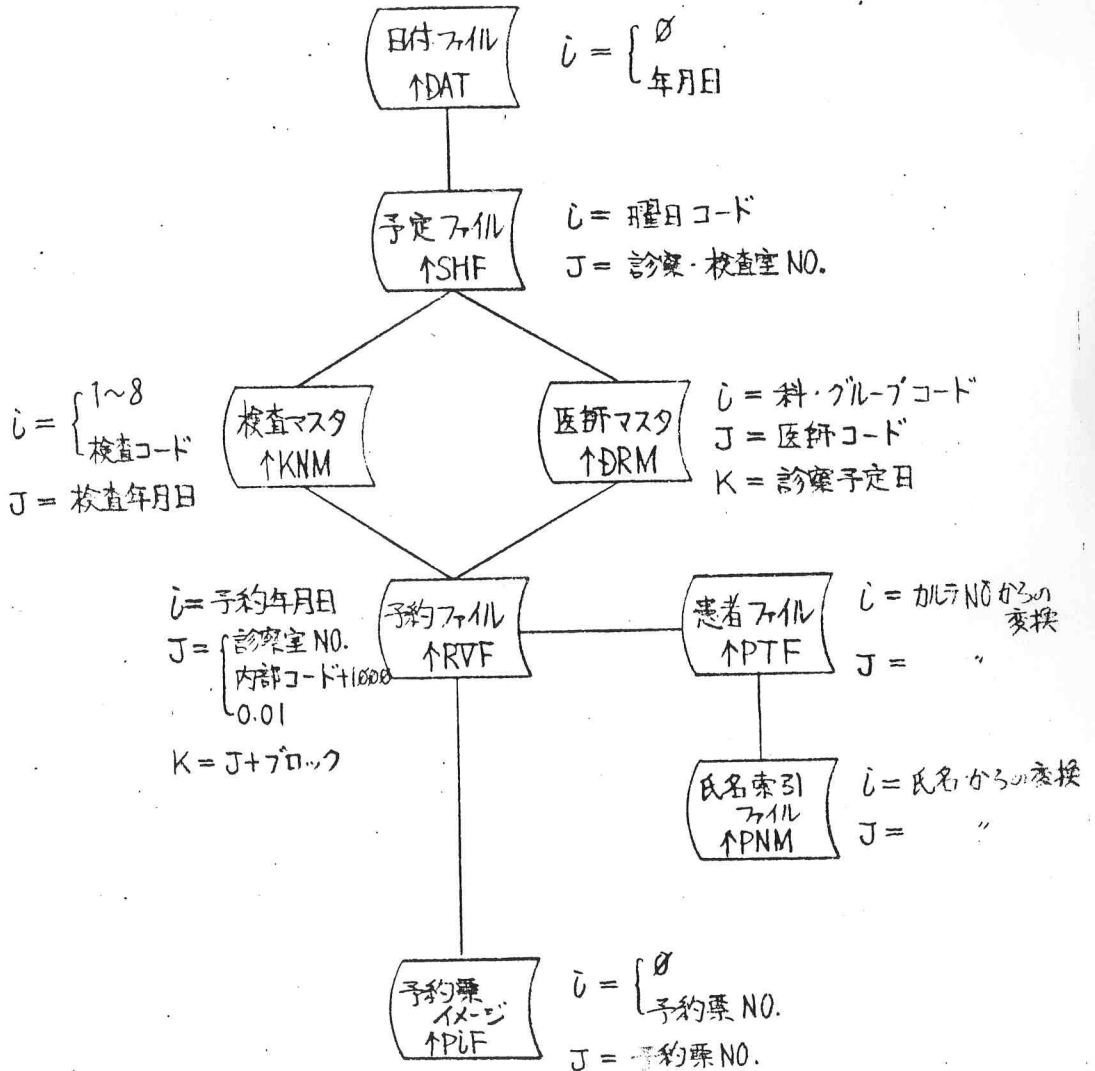 日付ファイル
↑DAT
i = { Ø
年月日
予定ファイル
↑SHF
i = 曜日コード
J = 診察・検査室NO.
i = { 1~8
検査コード
J = 検査年月日
検査マスタ
↑KNM
医師マスタ
↑DRM
i = 科・グループコード
J = 医師コード
K = 診察予定日
i = 予約年月日
J = { 診察室NO.
内部コード+1000
0.01
K = J+ブロック
予約ファイル
↑RVF
患者ファイル
↑PTF
i = カルテNOからの
変換
J = 〃
氏名索引
ファイル
↑PNM
i = 氏名からの変換
J = 〃
予約票
イメージ
↑PiF
i = { Ø
予約票NO.
J = 予約票NO.